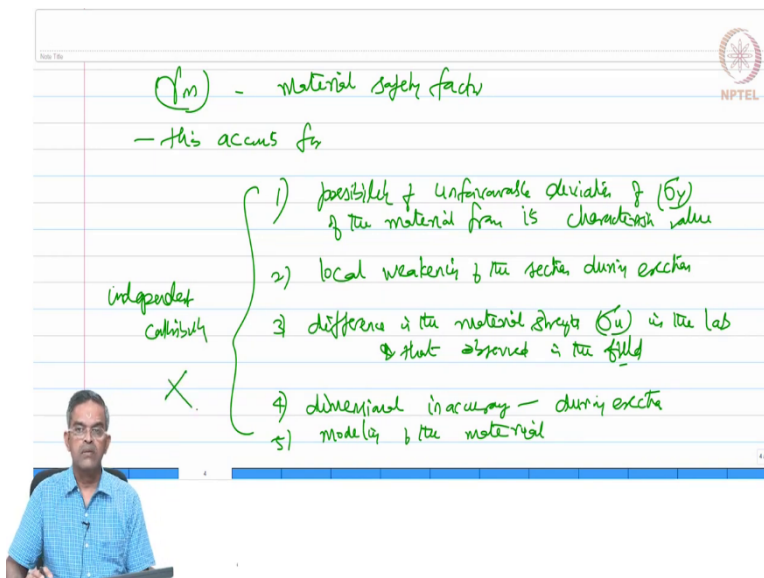 Note Title
NPTEL
(γm) - material safety factor
- this accounts for
1) possibility of unfavourable deviation of (σy)
of the material from its characteristic value
2) local weakening of the section during erection
independent
3) difference in the material strength (σu) in the lab
& that observed in the field
X.
4) dimensional inaccuracy - during erection
5) modeling of the material
4